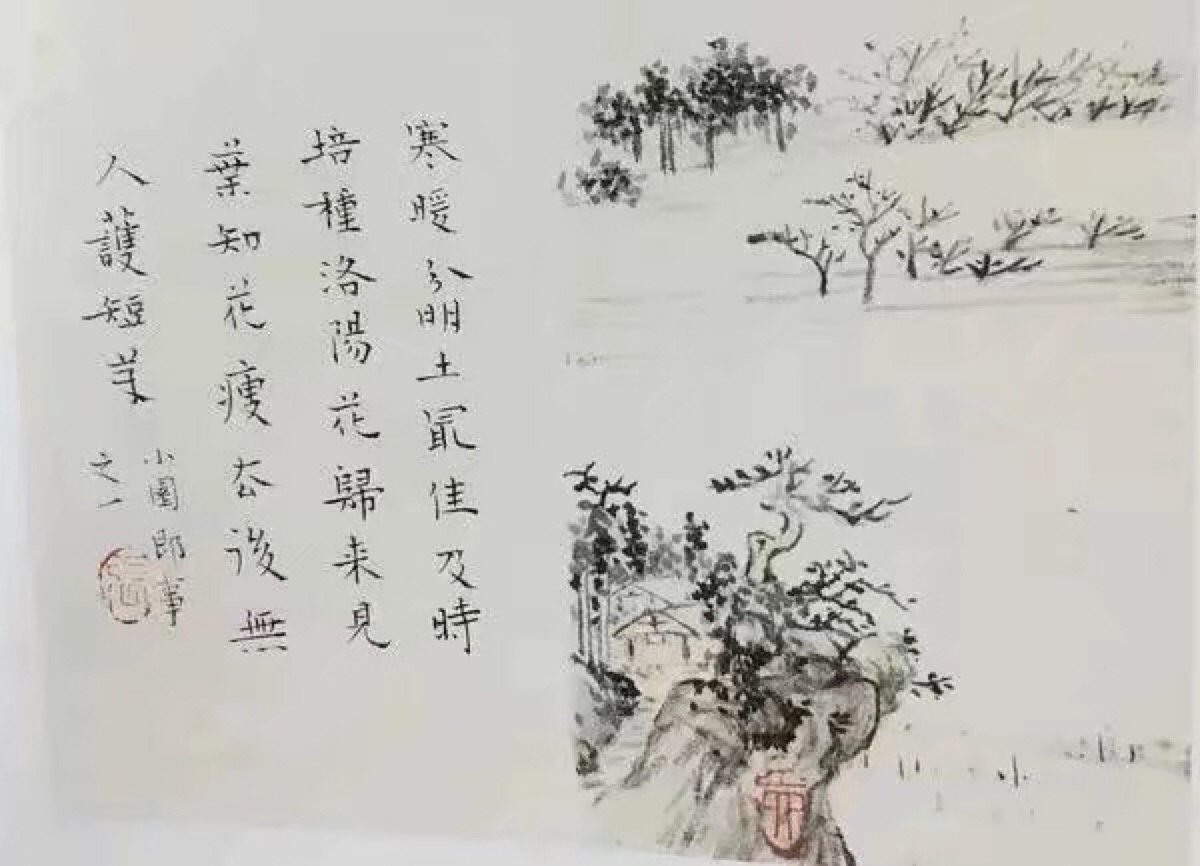 寒暖分明土冣佳及時
培種洛陽花歸来見
葉知花瘦厺後無
人護短芽
小園即事
之一